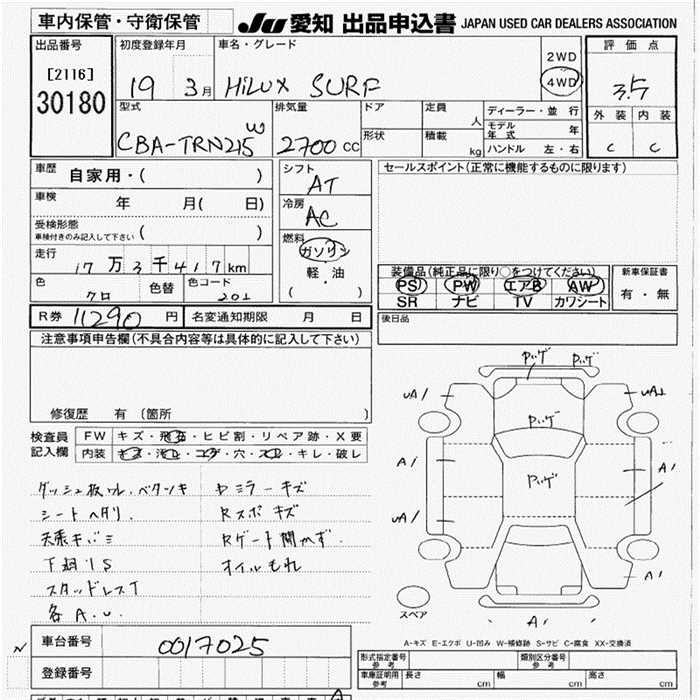 車内保管・守衛保管
JU 愛知 出品申込書 JAPAN USED CAR DEALERS ASSOCIATION
出品番号
[2116]
30180
初度登録年月
19 3月
車名・グレード
HiLUX SURF
2WD
4WD
評価点
3.5
外装 内装
C C
型式
CBA-TRN215W
排気量
2700 CC
ドア
形状
定員
人
積載
kg
ディーラー・並行
モデル年式 年
ハンドル 左・右
車歴
自家用・( )
車検 年 月( 日)
受検形態
車検付きのみ記入して下さい ( )
走行
17万3千417km
色
クロ
色替
色コード
202
シフト
AT
冷房
AC
燃料
ガソリン
軽・油
( )
セールスポイント(正常に機能するものに限ります)
装備品(純正品に限り○をつけてください)
PS PW エアB AW
SR ナビ TV カワシート
新車保証書
有・無
R券 11290 円
名変通知期限 月 日
後日品
注意事項申告欄(不具合内容等は具体的に記入して下さい)
修復歴 有(箇所 )
検査員
記入欄
FW キズ・飛石・ヒビ割・リペア跡・X要
内装 キズ・汚レ・コゲ・穴・スレ・キレ・破レ
ベタツキ
シートヘタリ
天張キバミ
下廻リS
スタッドレスT
各A.U.
ヤミラーキズ
Rスポキズ
Rゲート開かず.
オイルもれ
Pいゲ
Pいゲ
Pいゲ
Pいゲ
UA1
A1
UA1
A1
A1
A1
スペア
A-キズ E-エクボ U-凹み W-補修跡 S-サビ C-腐食 XX-交換済
車台番号
0017025
登録番号
形式指定番号
参考
類別区分番号
参考
車庫証明用
参考
長さ cm 幅 cm 高さ cm